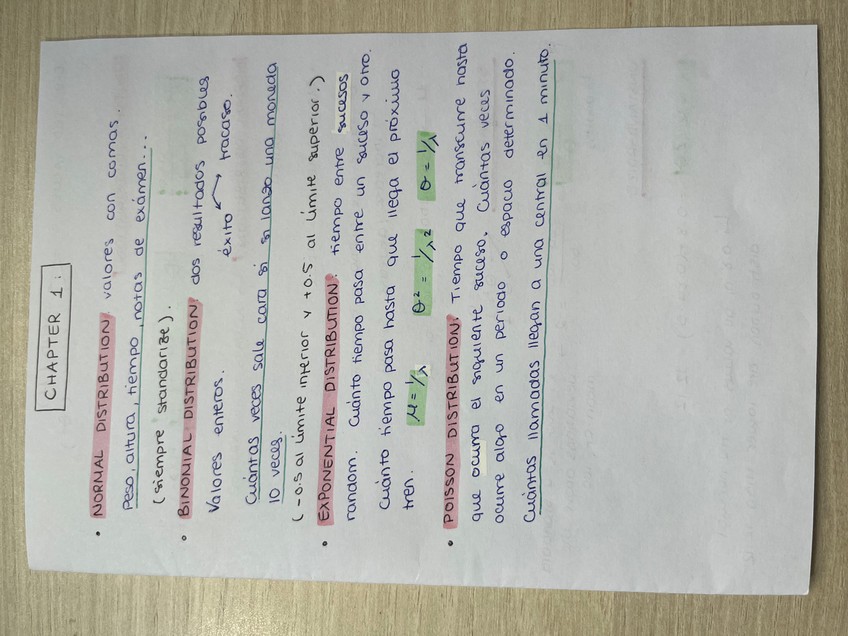 CHAPTER 1:
• NORMAL DISTRIBUTION: valores con comas.
Peso, altura, tiempo, notas de exámen...
(siempre standarize).
• BINONIAL DISTRIBUTION: dos resultados posibles
Valores enteros. éxito ↔ fracaso.
Cuántas veces sale cara si si lanzo una moneda
10 veces.
(-0.5 al límite inferior y +0.5 al límite superior.)
• EXPONENTIAL DISTRIBUTION: tiempo entre sucesos
random. Cuánto tiempo pasa entre un suceso y otro.
Cuánto tiempo pasa hasta que llega el próximo
tren. μ = 1/λ θ² = 1/λ² θ = 1/λ
• POISSON DISTRIBUTION: Tiempo que transcurre hasta
que ocurra el siguiente suceso. Cuántas veces
ocurre algo en un periodo o espacio determinado.
Cuántas llamadas llegan a una central en 1 minuto.